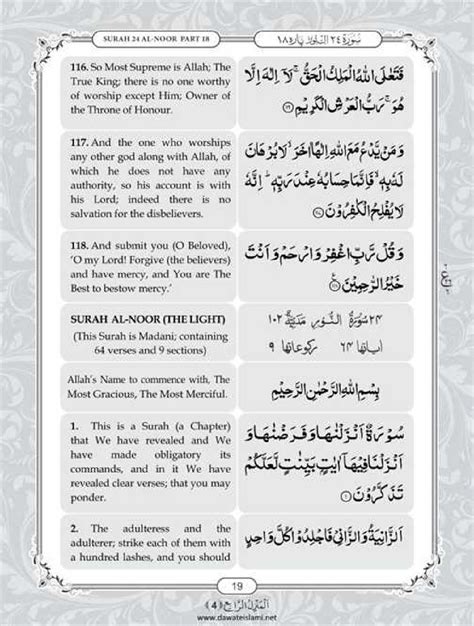 SURAH 24 AL-NOOR PART 18
سُوْرَة ٢٤ النُّوْر پاره ١٨
116. So Most Supreme is Allah; The
True King; there is no one worthy
of worship except Him; Owner of
the Throne of Honour.
فَتَعٰلَى اللهُ الْمَلِكُ الْحَقُّ ۚ لَاۤ اِلٰهَ اِلَّا
هُوَ ۚ رَبُّ الْعَرْشِ الْكَرِيْمِ
117. And the one who worships
any other god along with Allah, of
which he does not have any
authority, so his account is with
his Lord; indeed there is no
salvation for the disbelievers.
وَمَنْ يَّدْعُ مَعَ اللهِ اِلٰهًا اٰخَرَ ۙ لَا بُرْهَانَ
لَهٗ بِهٖ ۙ فَاِنَّمَا حِسَابُهٗ عِنْدَ رَبِّهٖ ؕ اِنَّهٗ
لَا يُفْلِحُ الْكٰفِرُوْنَ
118. And submit you (O Beloved),
‘O my Lord! Forgive (the believers)
and have mercy, and You are The
Best to bestow mercy.’
وَقُلْ رَّبِّ اغْفِرْ وَارْحَمْ وَاَنْتَ
خَيْرُ الرّٰحِمِيْنَ
SURAH AL-NOOR (THE LIGHT)
(This Surah is Madani; containing
64 verses and 9 sections)
٢٤ سُوْرَةُ النُّوْرِ مَدَنِيَّةٌ ١٠٢
اٰياتها ٦٤ ركوعاتها ٩
Allah's Name to commence with, The
Most Gracious, The Most Merciful.
بِسْمِ اللهِ الرَّحْمٰنِ الرَّحِيْمِ
1. This is a Surah (a Chapter)
that We have revealed and We
have made obligatory its
commands, and in it We have
revealed clear verses; that you may
ponder.
سُوْرَةٌ اَنْزَلْنٰهَا وَفَرَضْنٰهَا وَ
اَنْزَلْنَا فِيْهَاۤ اٰيٰتٍۭ بَيِّنٰتٍ لَّعَلَّكُمْ
تَذَكَّرُوْنَ
2. The adulteress and the
adulterer; strike each of them with
a hundred lashes, and you should
اَلزَّانِيَةُ وَالزَّانِيْ فَاجْلِدُوْا كُلَّ وَاحِدٍ
19
اَلْمَنْزِلُ الرَّابِع ﴿4﴾
www.dawateislami.net